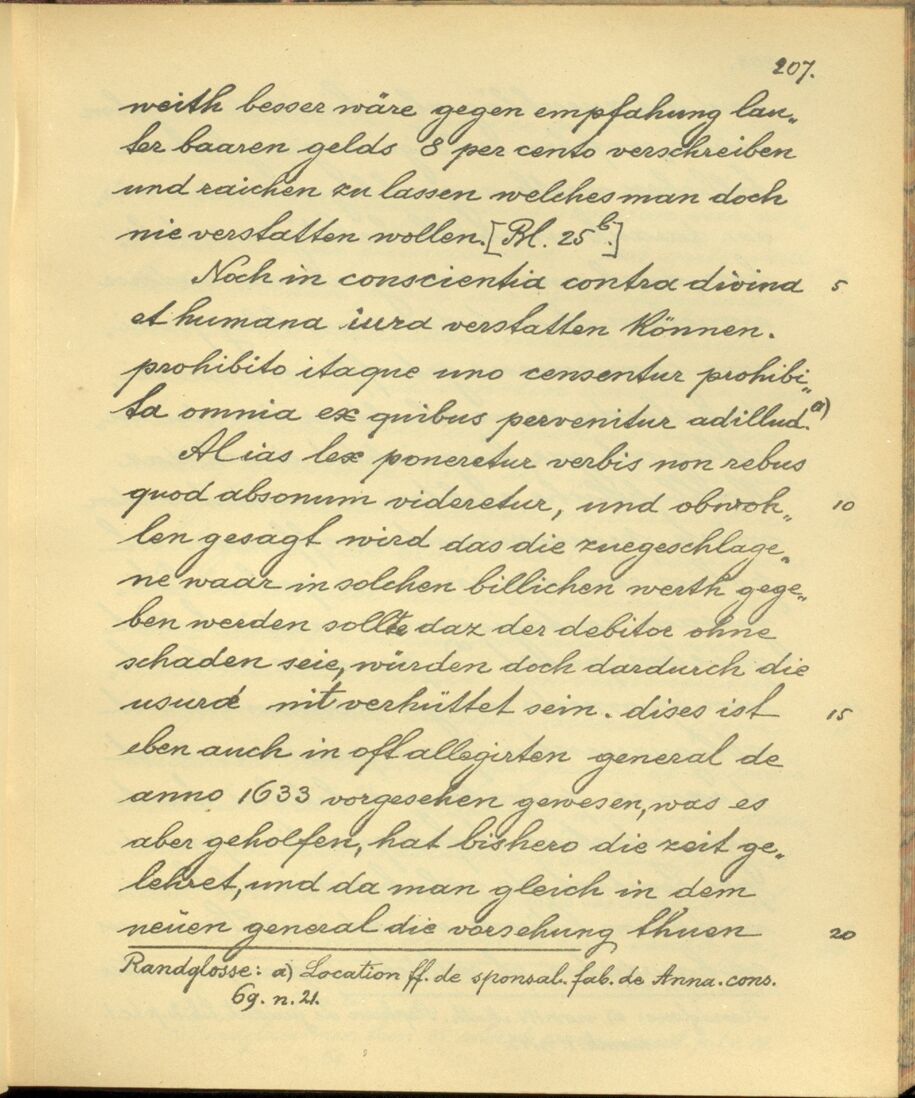 207.
weith besser wäre gegen empfahung lau„
ter baaren gelds 8 per cento verschreiben
und raichen zu lassen welches man doch
nie verstatten wollen. [Bl. 25b.]
Noch in conscientia contra divina 5
et humana iura verstatten können.
prohibito itaque uno censentur prohibi„
ta omnia ex quibus pervenitur ad illud. a)
Alias lex poneretur verbis non rebus
quod absonum videretur, und obwoh„ 10
len gesagt wird das die zuegeschlage„
ne waar in solchen billichen werth gege„
ben werden sollte daz der debitor ohne
schaden seie, würden doch dardurch die
usurae nit verhüttet sein. dises ist 15
eben auch in oft allegirten general de
anno 1633 vorgesehen gewesen, was es
aber geholfen, hat bishero die zeit ge„
lehret, und da man gleich in dem
neüen general die vorsehung thuen 20
Randglosse: a) Location ff. de sponsal. fab. de Anna. cons.
69. n. 21.